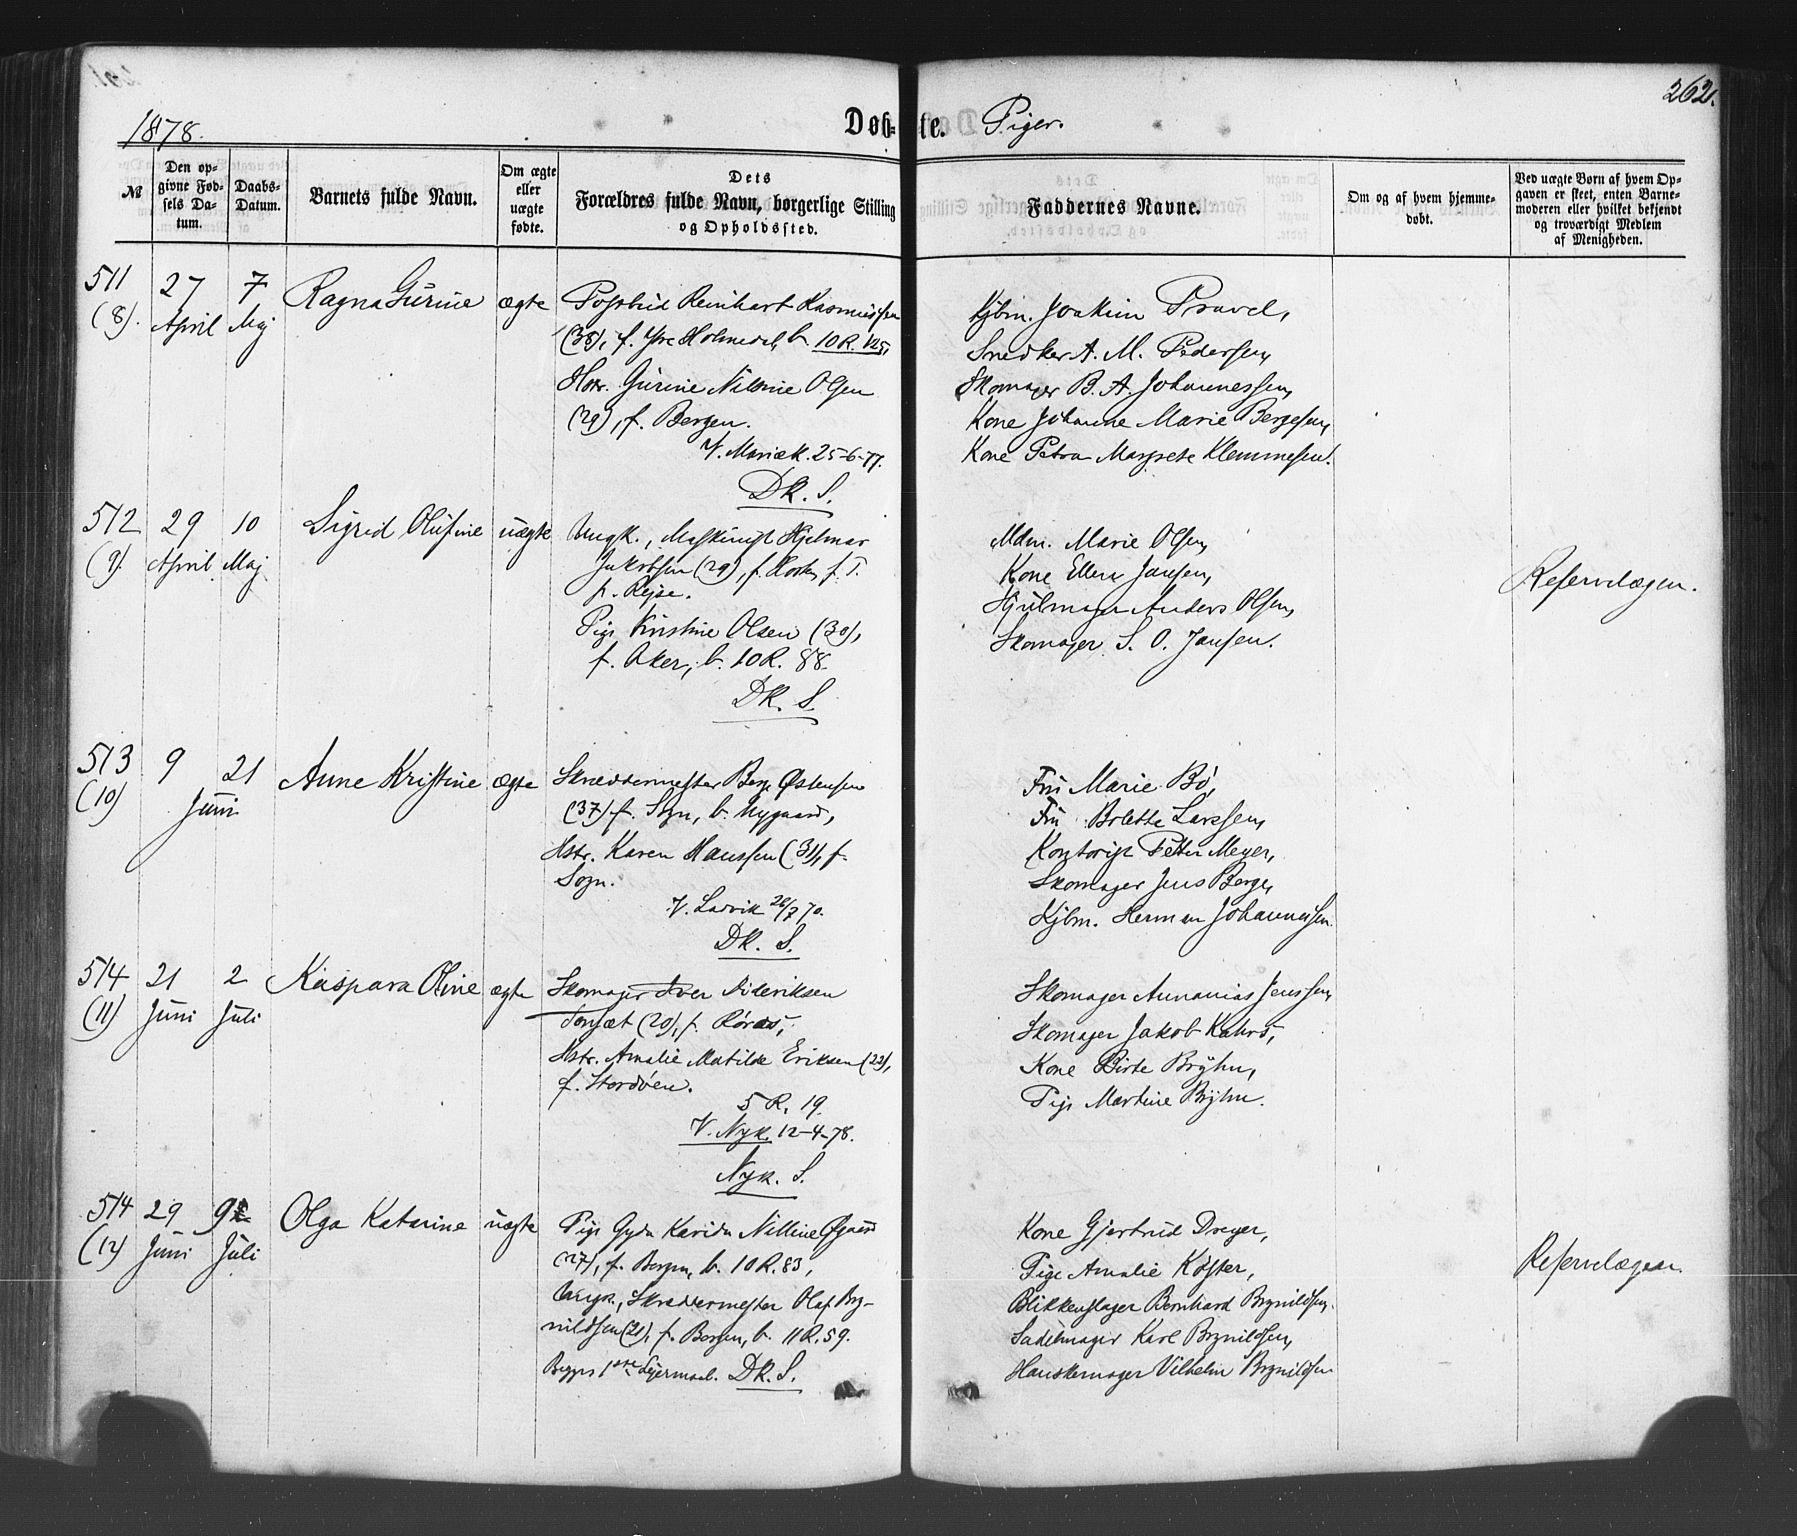 1878.
Døb-te. Piger.
262.
№
Den op-
givne Fød-
sels Da-
tum.
Daabs-
Datum.
Barnets fulde Navn.
Om ægte
eller
uægte
fødte.
Dets
Forældres fulde Navn, borgerlige Stilling
og Opholdssted.
Faddernes Navne.
Om og af hvem hjemme-
døbt.
Ved uægte Børn af hvem Op-
gaven er skeet, enten Barne-
moderen eller hvilket bekjendt
og troværdigt Medlem
af Menigheden.
511
(8).
27
April
7
Maj
Ragna Gurine
ægte
Reinhart Rasmussen
(38), f. Holmedal, b. 10 R. 125,
Hstr. Gurine Olsen
(29), f. Bergen.
V. Mariæk. 25-6-77.
DK. S.
Kjbm. Joakim
Snedker A. M. Pedersen,
Skomager B. A. Johannessen,
Kone Johanne Marie Bergesen,
Kone Petra Margrete Klemmesen.
512
(9).
29
April
10
Maj
Sigrid Olufine
uægte
Ungk., Maskinist Hjelmar
Jakobsen (29), f. T.
p. Rejse.
Pige Kristine Olsen (30),
f. Aker, b. 10 R. 88.
DK. S.
Mdm. Marie Olsen,
Kone Ellen Jansen,
Hjulmager Anders Olsen,
Skomager S. O. Jansen.
Reservelægen.
513
(10)
9
21
Juni
Anne Kristine
ægte
Skreddermester Berge Østensen
(37) f. Sogn, b. Nygaard,
Hstr. Karen Hanssen (31), f.
Sogn.
V. Ladvik 26/7 70.
DK. S.
Fru Marie Bö,
Fru Bolette Larssen,
Kontorist Petter Meyer,
Skomager Jens Berge,
Kjbm. Herman Johannessen.
514
(11)
21
Juni
2
Juli
Kaspara Oline
ægte
Skomager Iver Dideriksen
Tonsæt (20), f. Röraas,
Hstr. Amalie Matilde Eriksen (23),
f. Stordöen.
5 R. 19.
V. Nyk. 12-4-78.
Nyk. S.
Skomager Annanias Jenssen,
Skomager Jakob Kahrs,
Kone Birte Brÿhn,
Pige Martine Brÿhn.
514
(12)
29
Juni
9
Juli
Olga Katarine
uægte
Pige Gyda Karida Nilline
(27), f. Bergen, b. 10 R. 83,
Ungk., Skreddermester Olaf Bry-
nildsen (21), f. Bergen, b. 11 R. 59.
Begges 1ste Lejermaal. DK. S.
Kone Gjertrud Dreyer,
Pige Amalie Köster,
Blikkenslager Bernhard Brynildsen,
Sadelmager Karl Brynildsen,
Hanskemager Vilhelm Brynildsen
Reservelægen.